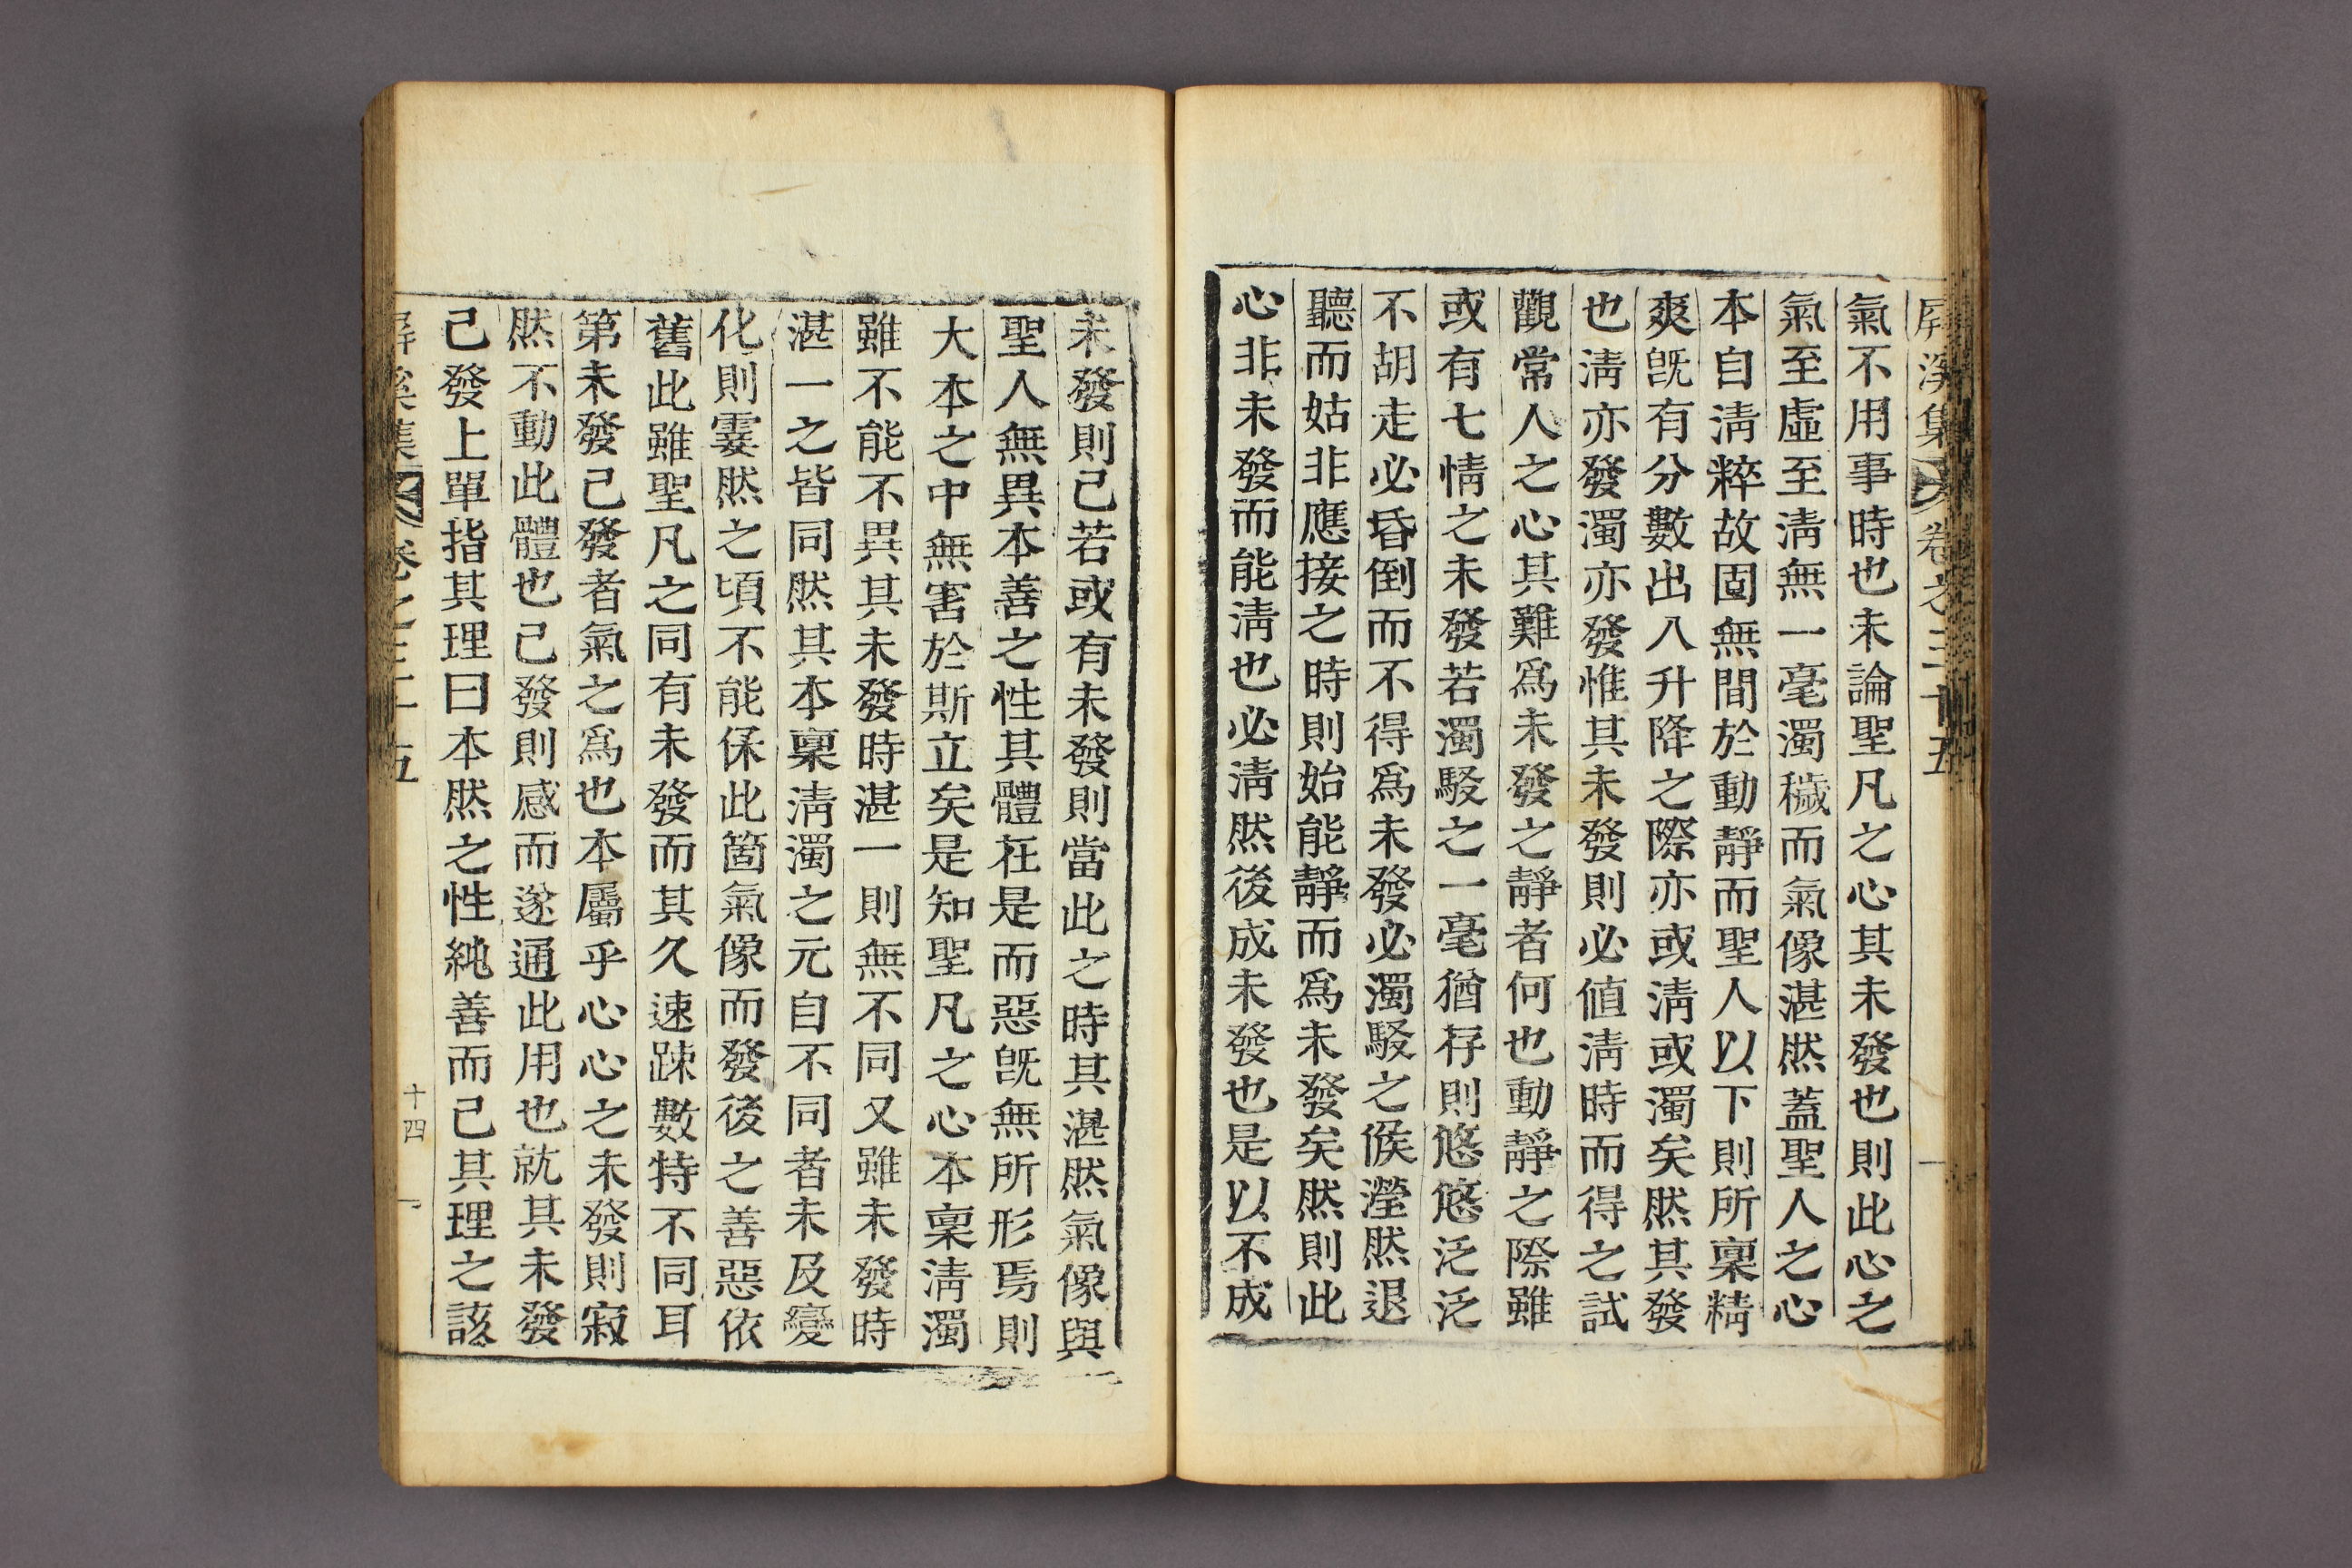 屛溪集 卷之三十五
氣不用事時也未論聖凡之心其未發也則此心之
氣至虛至淸無一毫濁穢而氣像湛然蓋聖人之心
本自淸粹故固無間於動靜而聖人以下則所稟精
爽旣有分數出入升降之際亦或淸或濁矣然其發
也淸亦發濁亦發惟其未發則必値淸時而得之試
觀常人之心其難爲未發之靜者何也動靜之際雖
或有七情之未發若濁駁之一毫猶存則悠悠泛泛
不胡走必昏倒而不得爲未發必濁駁之候瀅然退
聽而姑非應接之時則始能靜而爲未發矣然則此
心非未發而能淸也必淸然後成未發也是以不成
未發則已若或有未發則當此之時其湛然氣像與
聖人無異本善之性其體在是而惡旣無所形焉則
大本之中無害於斯立矣是知聖凡之心本稟淸濁
雖不能不異其未發時湛一則無不同又雖未發時
湛一之皆同然其本稟淸濁之元自不同者未及變
化則霎然之頃不能保此箇氣像而發後之善惡依
舊此雖聖凡之同有未發而其久速踈數特不同耳
第未發已發者氣之爲也本屬乎心心之未發則寂
然不動此體也已發則感而遂通此用也就其未發
已發上單指其理曰本然之性純善而已其理之該
屛溪集 卷之三十五 十四